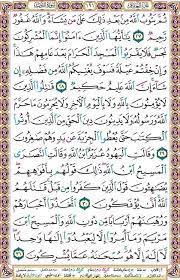 ثُمَّ يَتُوبُ ٱللَّهُ مِنۢ بَعْدِ ذَٰلِكَ عَلَىٰ مَن يَشَآءُ وَٱللَّهُ غَفُورٌ
رَّحِيمٌ ٢٧ يَٰٓأَيُّهَا ٱلَّذِينَ ءَامَنُوٓا۟ إِنَّمَا ٱلْمُشْرِكُونَ
نَجَسٌ فَلَا يَقْرَبُوا۟ ٱلْمَسْجِدَ ٱلْحَرَامَ بَعْدَ عَامِهِمْ هَٰذَا
وَإِنْ خِفْتُمْ عَيْلَةً فَسَوْفَ يُغْنِيكُمُ ٱللَّهُ مِن فَضْلِهِۦٓ إِن
شَآءَ إِنَّ ٱللَّهَ عَلِيمٌ حَكِيمٌ ٢٨ قَٰتِلُوا۟ ٱلَّذِينَ
لَا يُؤْمِنُونَ بِٱللَّهِ وَلَا بِٱلْيَوْمِ ٱلْءَاخِرِ وَلَا يُحَرِّمُونَ مَا حَرَّمَ
ٱللَّهُ وَرَسُولُهُۥ وَلَا يَدِينُونَ دِينَ ٱلْحَقِّ مِنَ ٱلَّذِينَ أُوتُوا۟
ٱلْكِتَٰبَ حَتَّىٰ يُعْطُوا۟ ٱلْجِزْيَةَ عَن يَدٍ وَهُمْ صَٰغِرُونَ
٢٩ وَقَالَتِ ٱلْيَهُودُ عُزَيْرٌ ٱبْنُ ٱللَّهِ وَقَالَتِ ٱلنَّصَٰرَى
ٱلْمَسِيحُ ٱبْنُ ٱللَّهِ ذَٰلِكَ قَوْلُهُم بِأَفْوَٰهِهِمْ
يُضَٰهِـُٔونَ قَوْلَ ٱلَّذِينَ كَفَرُوا۟ مِن قَبْلُ قَٰتَلَهُمُ
ٱللَّهُ أَنَّىٰ يُؤْفَكُونَ ٣٠ ٱتَّخَذُوٓا۟ أَحْبَارَهُمْ
وَرُهْبَٰنَهُمْ أَرْبَابًا مِّن دُونِ ٱللَّهِ وَٱلْمَسِيحَ ٱبْنَ
مَرْيَمَ وَمَآ أُمِرُوٓا۟ إِلَّا لِيَعْبُدُوٓا۟ إِلَٰهًا وَٰحِدًا
لَّآ إِلَٰهَ إِلَّا هُوَ سُبْحَٰنَهُۥ عَمَّا يُشْرِكُونَ ٣١